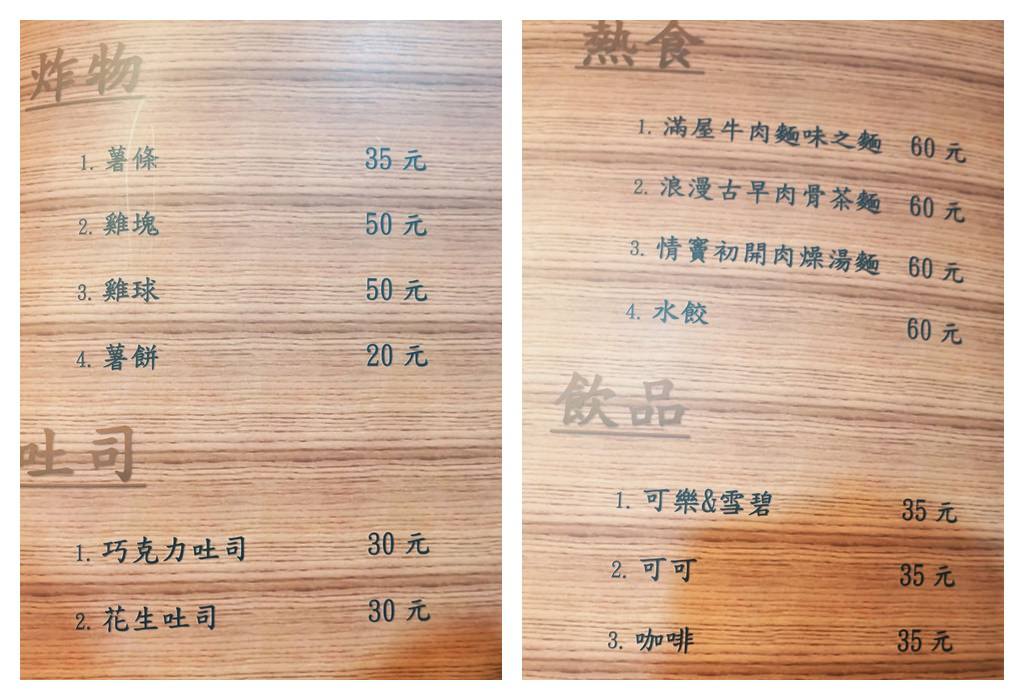 炸物
1. 薯條 35 元
2. 雞塊 50 元
3. 雞球 50 元
4. 薯餅 20 元
吐司
1. 巧克力吐司 30 元
2. 花生吐司 30 元
熱食
1. 滿屋牛肉麵味之麵 60 元
2. 浪漫古早肉骨茶麵 60 元
3. 情竇初開肉燥湯麵 60 元
4. 水餃 60 元
飲品
1. 可樂&雪碧 35 元
2. 可可 35 元
3. 咖啡 35 元